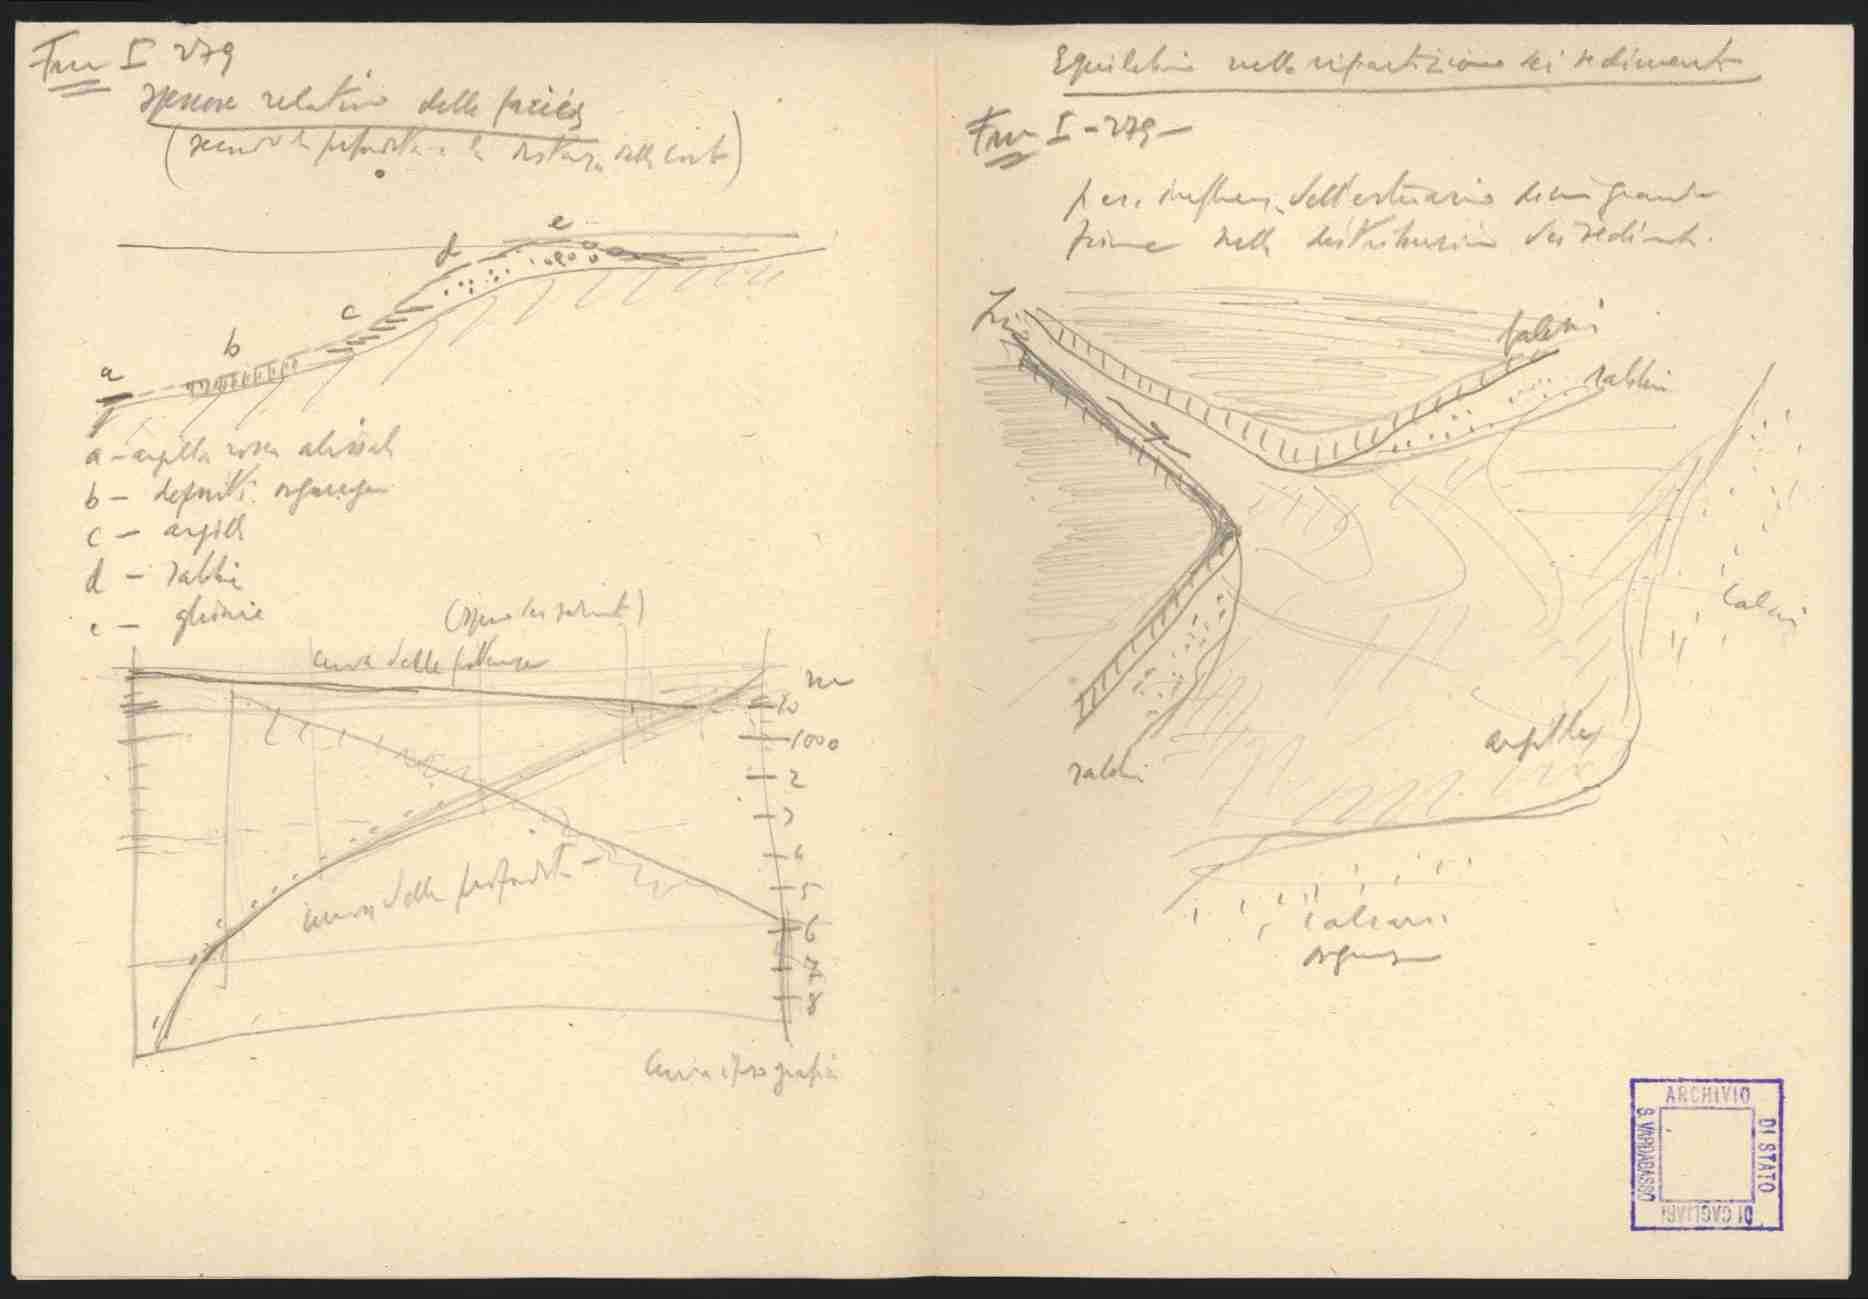 I 279
spessore relativo delle facies
(secondo la profondità e la distanza dalla costa)
e
d
c
b
a
a - argilla rossa abissale
b - depositi organogeni
c - argille
d - sabbie
e - ghiaie
curva delle potenze
m
1000
2
3
4
5
6
7
8
curva della profondità
Curva ipsografica
Equilibrio nella ripartizione dei sedimenti
I - 279 -
p. es. influenza dell'estuario di un grande
fiume nella distribuzione dei sedimenti.
sabbie
calcari
argille
sabbie
calcari
ARCHIVIO
DI STATO
DI CAGLIARI
S. VARDABASSO